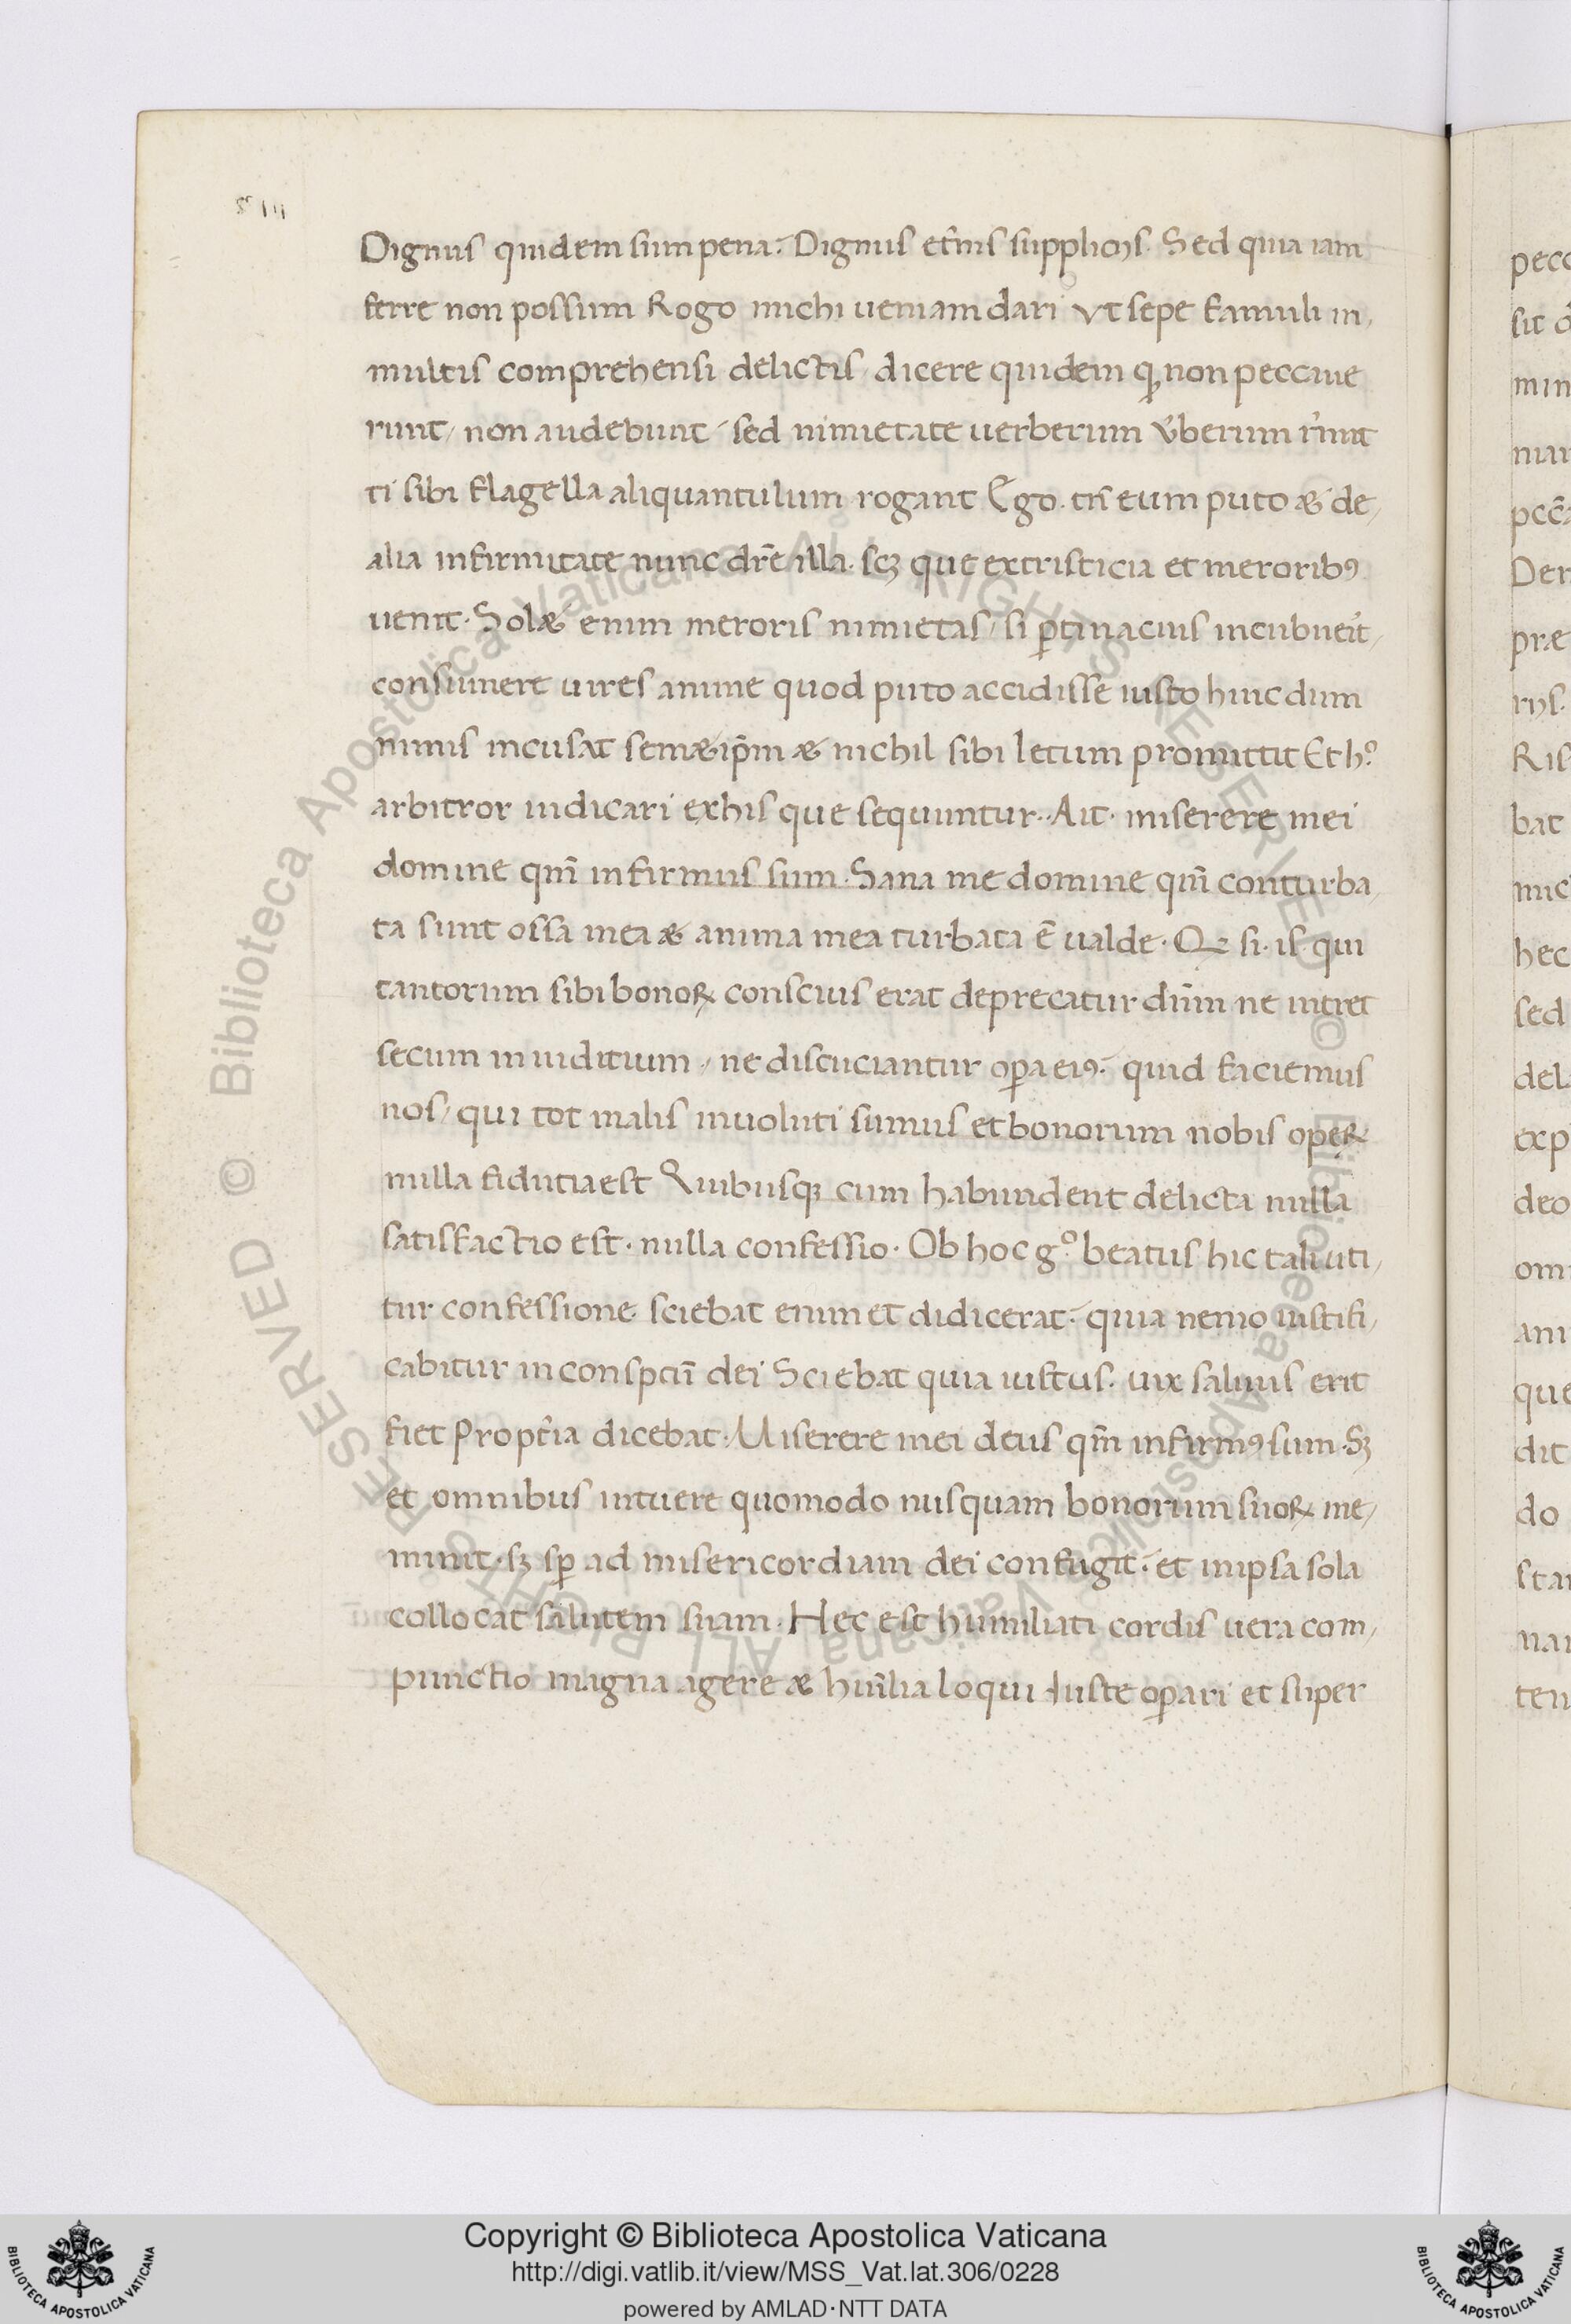 Dignus quidem sum pena. Dignus et̃nis supplicijs. Sed quia iam
ferre non possum Rogo michi ueniam dari vt sepe famuli in,
multis comprehensi delictis, dicere quidem ꝙ non peccaue
runt, non audebunt, sed nimietate uerberum
ti sibi flagella aliquantulum rogant Ego. tñ eum puto & de,
alia infirmitate nunc dr̃e illa. scꝫ que ex tristicia et meroribꝰ
uenit. Sol& enim meroris nimietas, si ꝑtinacius incubuerit,
consumere uires anime quod puto accidisse iusto huic dum
nimis incusat sem&ip̃m & nichil sibi letum promittit Et h.º
arbitror indicari ex his que sequuntur. Ait. miserere mei
domine qm̃ infirmus sum. Sana me domine qm̃ conturba,
ta sunt ossa mea & anima mea turbata ẽ ualde. Q si. is qui
tantorum sibi bonoꝝ conscius erat deprecatur dñm ne intret
secum in iuditium, ne discuciantur oꝑa eiꝰ. quid faciemus
nos, qui tot malis inuoluti sumus et bonorum nobis opeꝝ
nulla fidutia est Quibusqꝫ cum habundent delicta nulla
satisfactio est. nulla confessio. Ob hoc g.º beatus hic tali uti,
tur confessione. sciebat enim et didicerat. quia nemo iustifi,
cabitur in conspctũ dei Sciebat quia iustus. uix saluus erit
fiet Propt̃ia dicebat. Miserere mei deus qm̃ infirmꝰ sum. Sꝫ
et omnibus intuere quomodo nusquam bonorum suoꝝ me,
minit. sꝫ sꝑ ad misericordiam dei confugit. et in ipsa sola
collocat salutem suam. Hec est humiliati cordis uera com,
punctio magna agere & hum̃lia loqui Iuste oꝑari et super
pecc
sit d
min
nar
pcc̃a
Der
præ
rijs.
Ris
bat
mic
hec
sed
del
exp
deo
om
ani
que
dit
do
star
nar
ten
© Biblioteca Apostolica Vaticana ALL RIGHTS RESERVED © Biblioteca Apostolica Vaticana ALL RIGHTS RESERVED
Copyright © Biblioteca Apostolica Vaticana
http://digi.vatlib.it/view/MSS_Vat.lat.306/0228
powered by AMLAD·NTT DATA
BIBLIOTECA APOSTOLICA VATICANA
BIBLIOTECA APOSTOLICA VATICANA